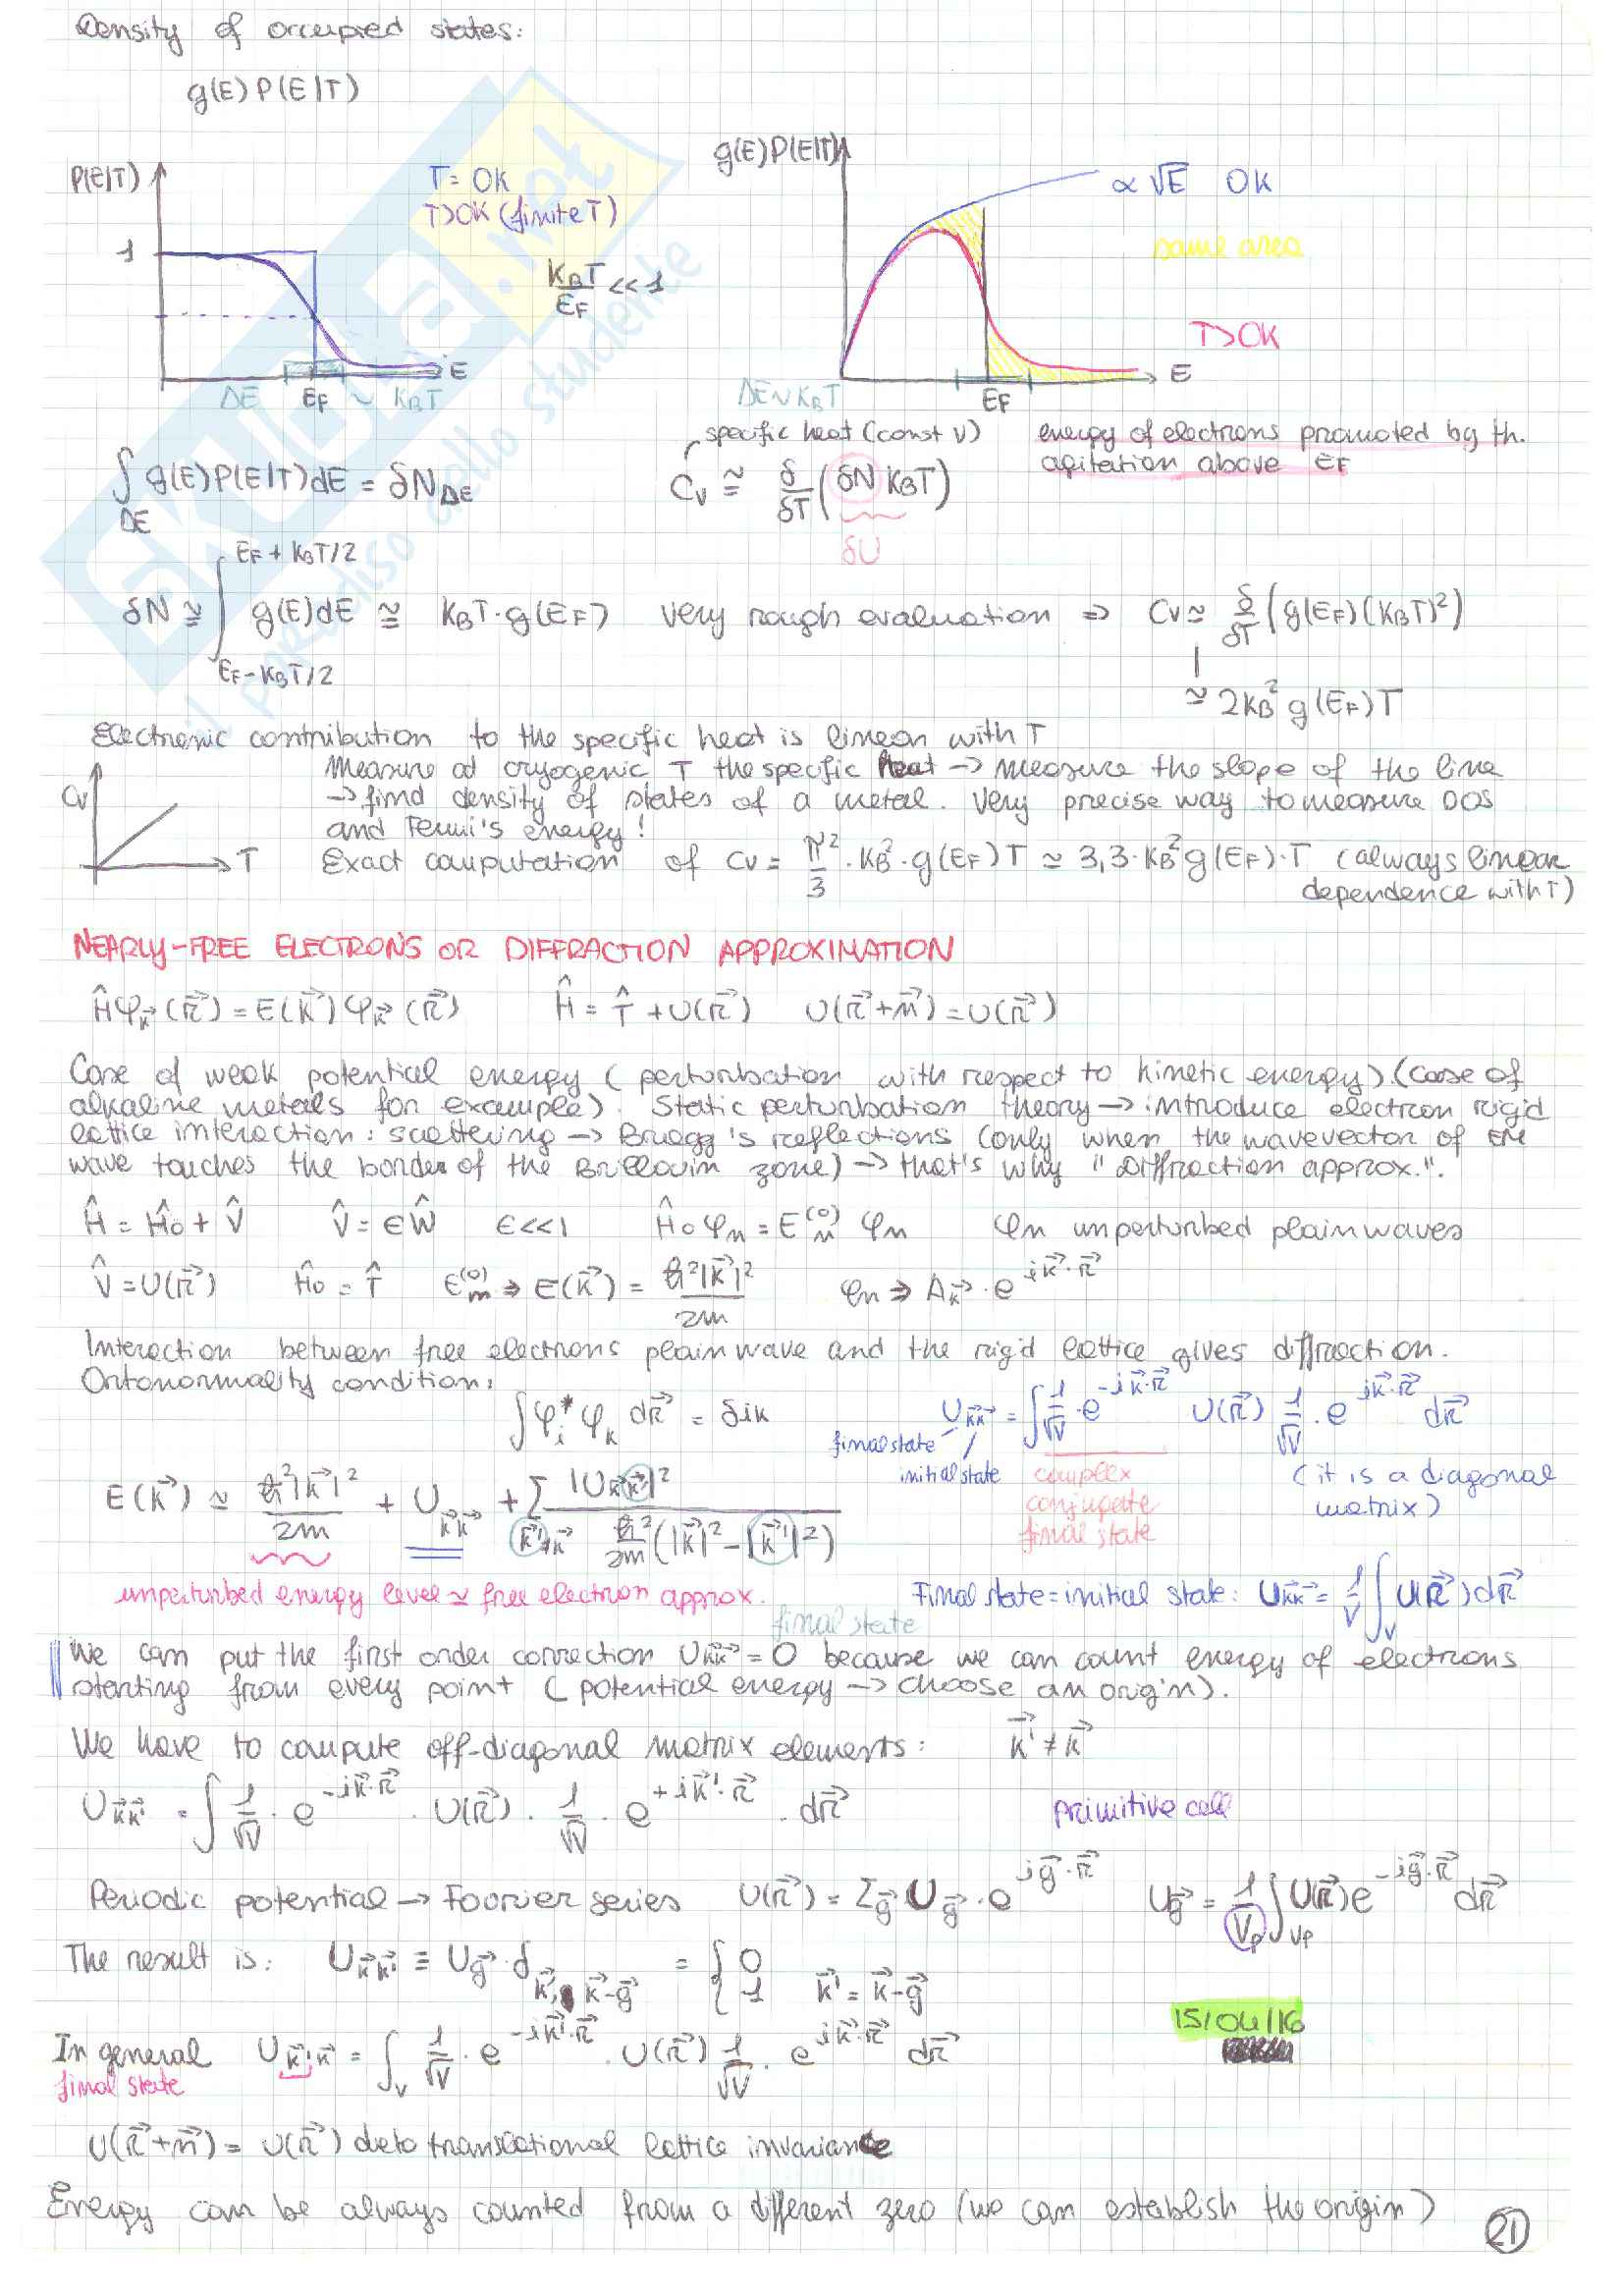 Density of occupied states:
g(E)P(E|T)
P(E|T)
1
T= 0K
T>0K (finite T)
K_BT/E_F <<1
E
ΔE E_F ~ K_BT
g(E)P(E|T)
∝ √E 0K
same area
T>0K
E
ΔE~K_BT
E_F
specific heat (const V)
energy of electrons promoted by th.
agitation above E_F
∫_ΔE g(E)P(E|T)dE = δN_ΔE
C_V ≅ δ/δT (δN K_BT)
δU
δN ≅ ∫_{E_F-K_BT/2}^{E_F+K_BT/2} g(E)dE ≅ K_BT·g(E_F) very rough evaluation ⇒ C_V≃ δ/δT (g(E_F)(K_BT)²)
≃ 2K_B² g(E_F)T
Electronic contribution to the specific heat is linear with T
C_V
T
Measure at cryogenic T the specific heat → measure the slope of the line
→ find density of states of a metal. Very precise way to measure DOS
and Fermi's energy!
Exact computation of C_V = π²/3 · K_B² · g(E_F)T ≃ 3,3·K_B² g(E_F)·T (always linear
dependence with T)
NEARLY-FREE ELECTRONS OR DIFFRACTION APPROXIMATION
Ĥφ_k⃗(r⃗) = E(k⃗)φ_k⃗(r⃗) Ĥ = T̂ + U(r⃗) U(r⃗+n⃗)=U(r⃗)
Case of weak potential energy (perturbation with respect to kinetic energy) (case of
alkaline metals for example). Static perturbation theory → introduce electron rigid
lattice interaction: scattering → Bragg's reflections (only when the wavevector of EM
wave touches the border of the Brillouin zone) → that's why "Diffraction approx.".
Ĥ = Ĥ₀ + V̂ V̂ = ϵŴ ϵ<<1 Ĥ₀φ_n = E_n^(0) φ_n φ_n unperturbed plain waves
V̂ = U(r⃗) Ĥ₀ = T̂ E_n^(0) ⇒ E(k⃗) = ħ²|k⃗|²/2m φ_n ⇒ A_k⃗ · e^{ik⃗·r⃗}
Interaction between free electrons plain wave and the rigid lattice gives diffraction.
Ortonormality condition:
∫φ_i* φ_k dr⃗ = δik
U_k⃗k⃗ = ∫ 1/√V · e^{-ik⃗·r⃗} U(r⃗) 1/√V · e^{ik⃗·r⃗} dr⃗
final state
initial state
complex
conjugate
final state
(it is a diagonal
matrix)
E(k⃗) ≃ ħ²|k⃗|²/2m + U_k⃗k⃗ + Σ_{k⃗'≠k⃗} |U_k⃗k⃗'|² / ħ²/2m (|k⃗|² - |k⃗'|²)
unperturbed energy level ≃ free electron approx.
final state
Final state = initial state: U_k⃗k⃗ = 1/V ∫_V U(r⃗)dr⃗
We can put the first order correction U_k⃗k⃗ = 0 because we can count energy of electrons
starting from every point (potential energy → choose an origin).
We have to compute off-diagonal matrix elements: k⃗' ≠ k⃗
U_k⃗k⃗' = ∫ 1/√V · e^{-ik⃗·r⃗} · U(r⃗) · 1/√V · e^{+ik⃗'·r⃗} · dr⃗
primitive cell
Periodic potential → Fourier series U(r⃗) = Σ_g⃗ U_g⃗ · e^{ig⃗·r⃗} U_g⃗ = 1/V_p ∫_{V_p} U(r⃗)e^{-ig⃗·r⃗} dr⃗
The result is: U_k⃗k⃗' ≡ U_g⃗ · δ_{k⃗', k⃗-g⃗} = { 0
1 k⃗' = k⃗-g⃗
15/04/16
In general U_k⃗'k⃗ = ∫_V 1/√V · e^{-ik⃗'·r⃗} · U(r⃗) 1/√V · e^{ik⃗·r⃗} dr⃗
final state
U(r⃗+n⃗) = U(r⃗) due to translational lattice invariance
Energy can be always counted from a different zero (we can establish the origin)
21
SKUOLA.net
il paradiso dello studente